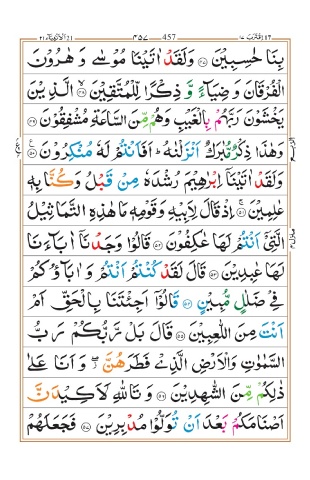 اقترب ١٧ ٤٥٧ 457 الانبياء ٢١
بِنَا حٰسِبِيْنَ ﴿٤٧﴾ وَلَقَدْ اٰتَيْنَا مُوْسٰى وَ هٰرُوْنَ
الْفُرْقَانَ وَ ضِيَآءً وَّ ذِكْرًا لِّلْمُتَّقِيْنَ ﴿٤٨﴾ الَّذِيْنَ
يَخْشَوْنَ رَبَّهُمْ بِالْغَيْبِ وَهُمْ مِّنَ السَّاعَةِ مُشْفِقُوْنَ ﴿٤٩﴾
وَهٰذَا ذِكْرٌ مُّبٰرَكٌ اَنْزَلْنٰهُ ؕ اَفَاَنْتُمْ لَهٗ مُنْكِرُوْنَ ﴿٥٠﴾
وَلَقَدْ اٰتَيْنَآ اِبْرٰهِيْمَ رُشْدَهٗ مِنْ قَبْلُ وَ كُنَّا بِهٖ
عٰلِمِيْنَ ﴿٥١﴾ اِذْ قَالَ لِاَبِيْهِ وَ قَوْمِهٖ مَا هٰذِهِ التَّمَاثِيْلُ
الَّتِيْٓ اَنْتُمْ لَهَا عٰكِفُوْنَ ﴿٥٢﴾ قَالُوْا وَجَدْنَآ اٰبَآءَنَا
لَهَا عٰبِدِيْنَ ﴿٥٣﴾ قَالَ لَقَدْ كُنْتُمْ اَنْتُمْ وَ اٰبَآؤُكُمْ
فِيْ ضَلٰلٍ مُّبِيْنٍ ﴿٥٤﴾ قَالُوْٓا اَجِئْتَنَا بِالْحَقِّ اَمْ
اَنْتَ مِنَ اللّٰعِبِيْنَ ﴿٥٥﴾ قَالَ بَلْ رَّبُّكُمْ رَبُّ
السَّمٰوٰتِ وَالْاَرْضِ الَّذِيْ فَطَرَهُنَّ ۖ وَ اَنَا عَلٰى
ذٰلِكُمْ مِّنَ الشّٰهِدِيْنَ ﴿٥٦﴾ وَ تَاللّٰهِ لَاَكِيْدَنَّ
اَصْنَامَكُمْ بَعْدَ اَنْ تُوَلُّوْا مُدْبِرِيْنَ ﴿٥٧﴾ فَجَعَلَهُمْ